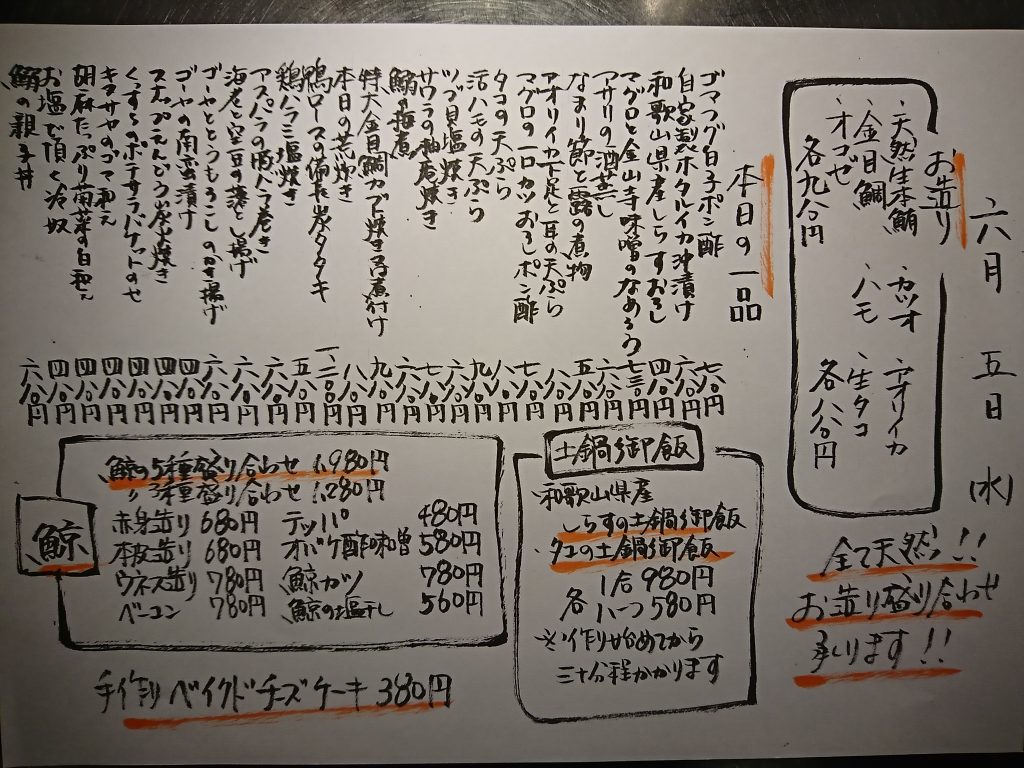 六月 五日 (水)
お造り
、天然生本鮪 、カツオ 、アオリイカ
、金目鯛 、ハモ 、生タコ
、オコゼ
各九八〇円 各八八〇円
全て天然!!
お造り盛り合わせ
承ります!!
本日の一品
ゴマフグ白子ポン酢 七八〇円
自家製ホタルイカ沖漬け 六八〇円
和歌山県産しらすおろし 四八〇円
マグロと金山寺味噌のなめろう 七三〇円
アサリの酒蒸し 六八〇円
なまり節と蕗の煮物 五八〇円
アオリイカ下足と耳の天ぷら 八八〇円
マグロの一口カツおろしポン酢 七八〇円
タコの天ぷら 八八〇円
活ハモの天ぷら 九八〇円
ツブ貝塩焼き 六八〇円
サワラの柚庵焼き 七八〇円
鰯の梅煮 六八〇円
特大金目鯛カブト焼きor煮付け 九八〇円
本日の荒炊き 八八〇円
鴨ロースの備長炭タタキ 一、二八〇円
鶏ハラミ塩焼き 五八〇円
アスパラの豚バラ巻き 六八〇円
海老と空豆の落とし揚げ 六八〇円
ゴーヤととうもろこしのかき揚げ 六八〇円
ゴーヤの南蛮漬け 四八〇円
スナップえんどう炭火焼き 四八〇円
ポテサラバケットのせ 四八〇円
キヌサヤのゴマ和え 四八〇円
胡麻たっぷり菊菜の白和え 四八〇円
お塩で頂く冷奴 四八〇円
の親子丼 六八〇円
土鍋御飯
・和歌山県産
しらすの土鍋御飯
・タコの土鍋御飯
各 1合 980円
ハーフ 580円
※作り始めてから
三十分程かかります
鯨
鯨の5種盛り合わせ 1,980円
〃 3種盛り合わせ 1,280円
赤身造り 680円 テッパ 480円
本皮造り 680円 オバケ酢味噌 580円
ウネス造り 780円 鯨カツ 780円
ベーコン 780円 鯨の塩干し 560円
手作りベイクドチーズケーキ 380円